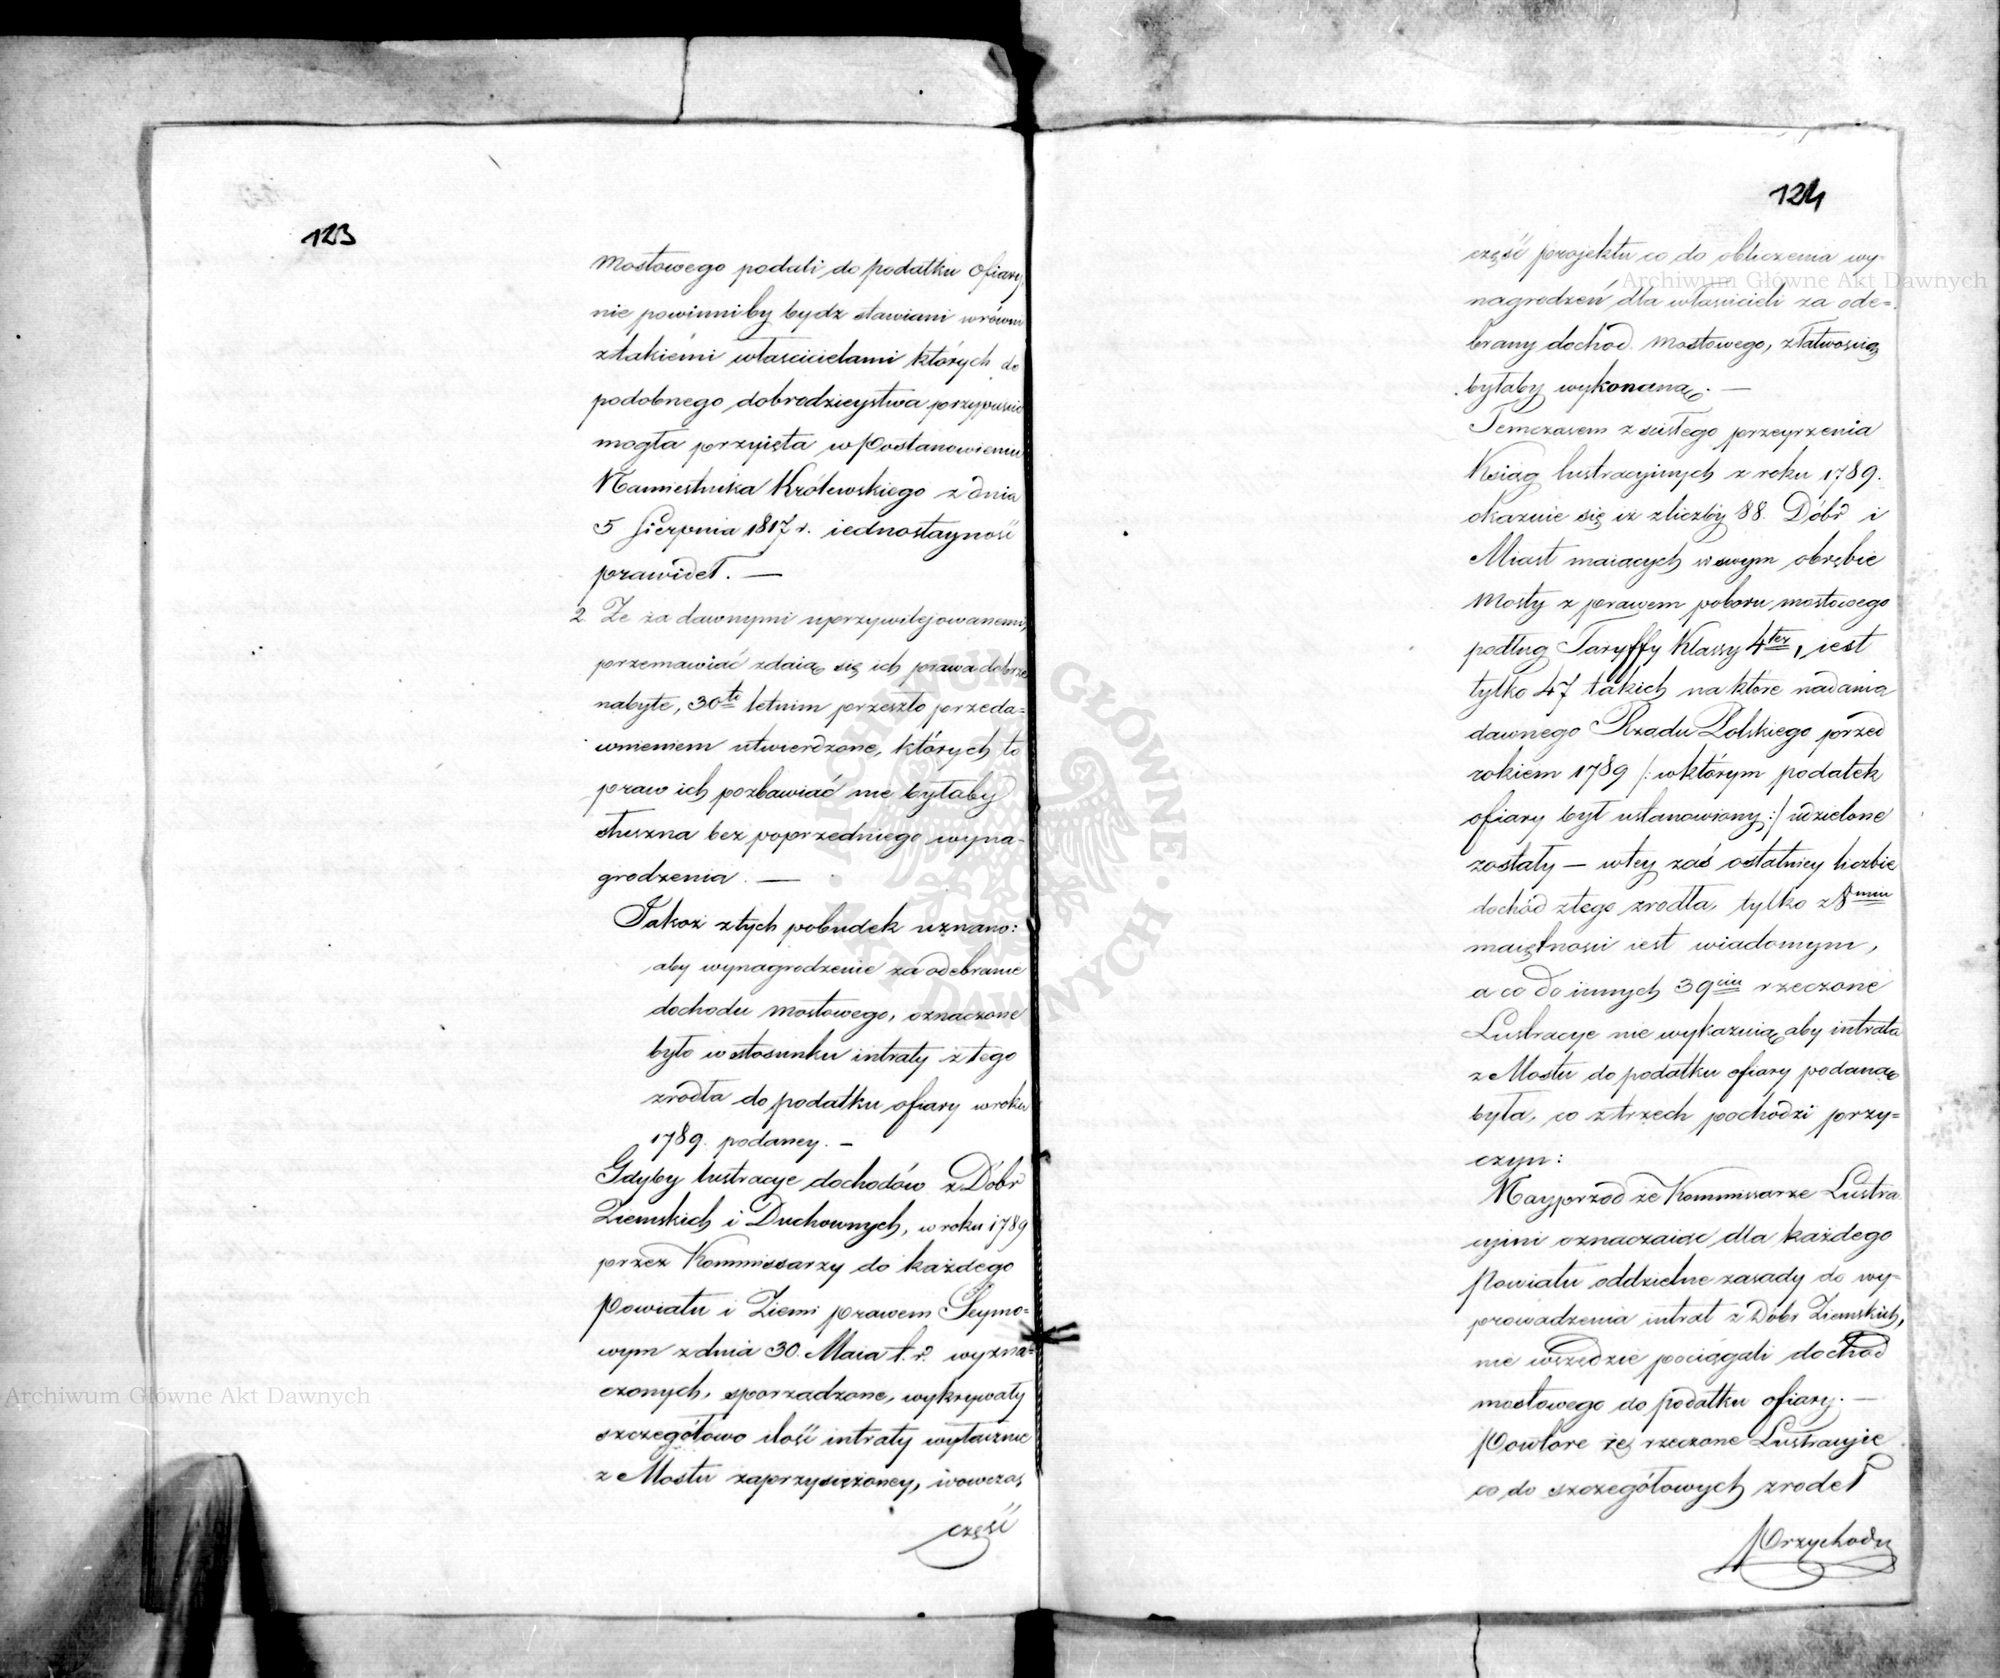 123
mostowego podali do podatku Ofiary,
nie powinniby bydz stawiani wrówni
ztakiémi właścicielami których do
podobnego dobrodzieystwa przypuścić
mogła przyięta w Postanowieniu
Namiestnika Królewskiego z dnia
5 Sierpnia 1817 r. iednostayność
prawideł. —
2. Że za dawnymi uprzywilejowanemi,
przemawiać zdaią się ich prawa dobrze
nabyte, 30to letnim przeszło przeda=
wnieniem utwierdzone, których to
praw ich pozbawiać nie byłaby
słuszna bez poprzedniego wyna=
grodzenia. —
Jakoż ztych pobudek uznano:
aby wynagrodzenie za odebranie
dochodu mostowego, oznaczone
było wstosunku intraty z tego
zrodła do podatku ofiary wroku
1789. podaney. —
Gdyby lustracye dochodów z Dóbr
Ziemskich i Duchownych, w roku 1789
przez Kommissarzy do każdego
Powiatu i Ziemi prawem Seymo=
wym z dnia 30. Maia t. r. wyzna=
czonych, sporządzone, wykrywały
szczegółowo ilość intraty wyłącznie
z Mostu zaprzysiężoney, wowczas
część
124
część projektu co do obliczenia wy=
nagrodzeń dla właścicieli za ode=
brany dochod mostowego, złatwością
byłaby wykonaną. —
Temczasem z ścisłego przeyrzenia
Ksiąg lustracyinych z roku 1789.
okazuie się iż zliczby 88. Dóbr i
Miast maiących w swym obrębie
Mosty z prawem poboru mostowego
podług Taryffy Klassy 4tey, iest
tylko 47 takich na które nadania
dawnego Rządu Polskiego przed
rokiem 1789 /: wktórym podatek
ofiary był ustanowiony :/ udzielone
zostały — wtey zaś ostatniey liczbie
dochód ztego zrodła, tylko z 8miu
maiętności iest wiadomym,
a co do innych 39ciu rzeczone
Lustracye nie wykazuią aby intrata
z Mostu do podatku ofiary podaną
była, co z trzech pochodzi przy=
czyn:
Nayprzód że Kommissarze Lustra
cyini oznaczaiąc dla każdego
Powiatu oddzielne zasady do wy=
prowadzenia intrat z Dóbr Ziemskich,
nie wszędzie pociągali dochod
mostowego do podatku ofiary. —
Powtore że rzeczone Lustracyie
co do szczegółowych zrodeł
Przychodu
Archiwum Główne Akt Dawnych
Archiwum Główne Akt Dawnych
ARCHIWUM GŁÓWNE · AKT DAWNYCH ·